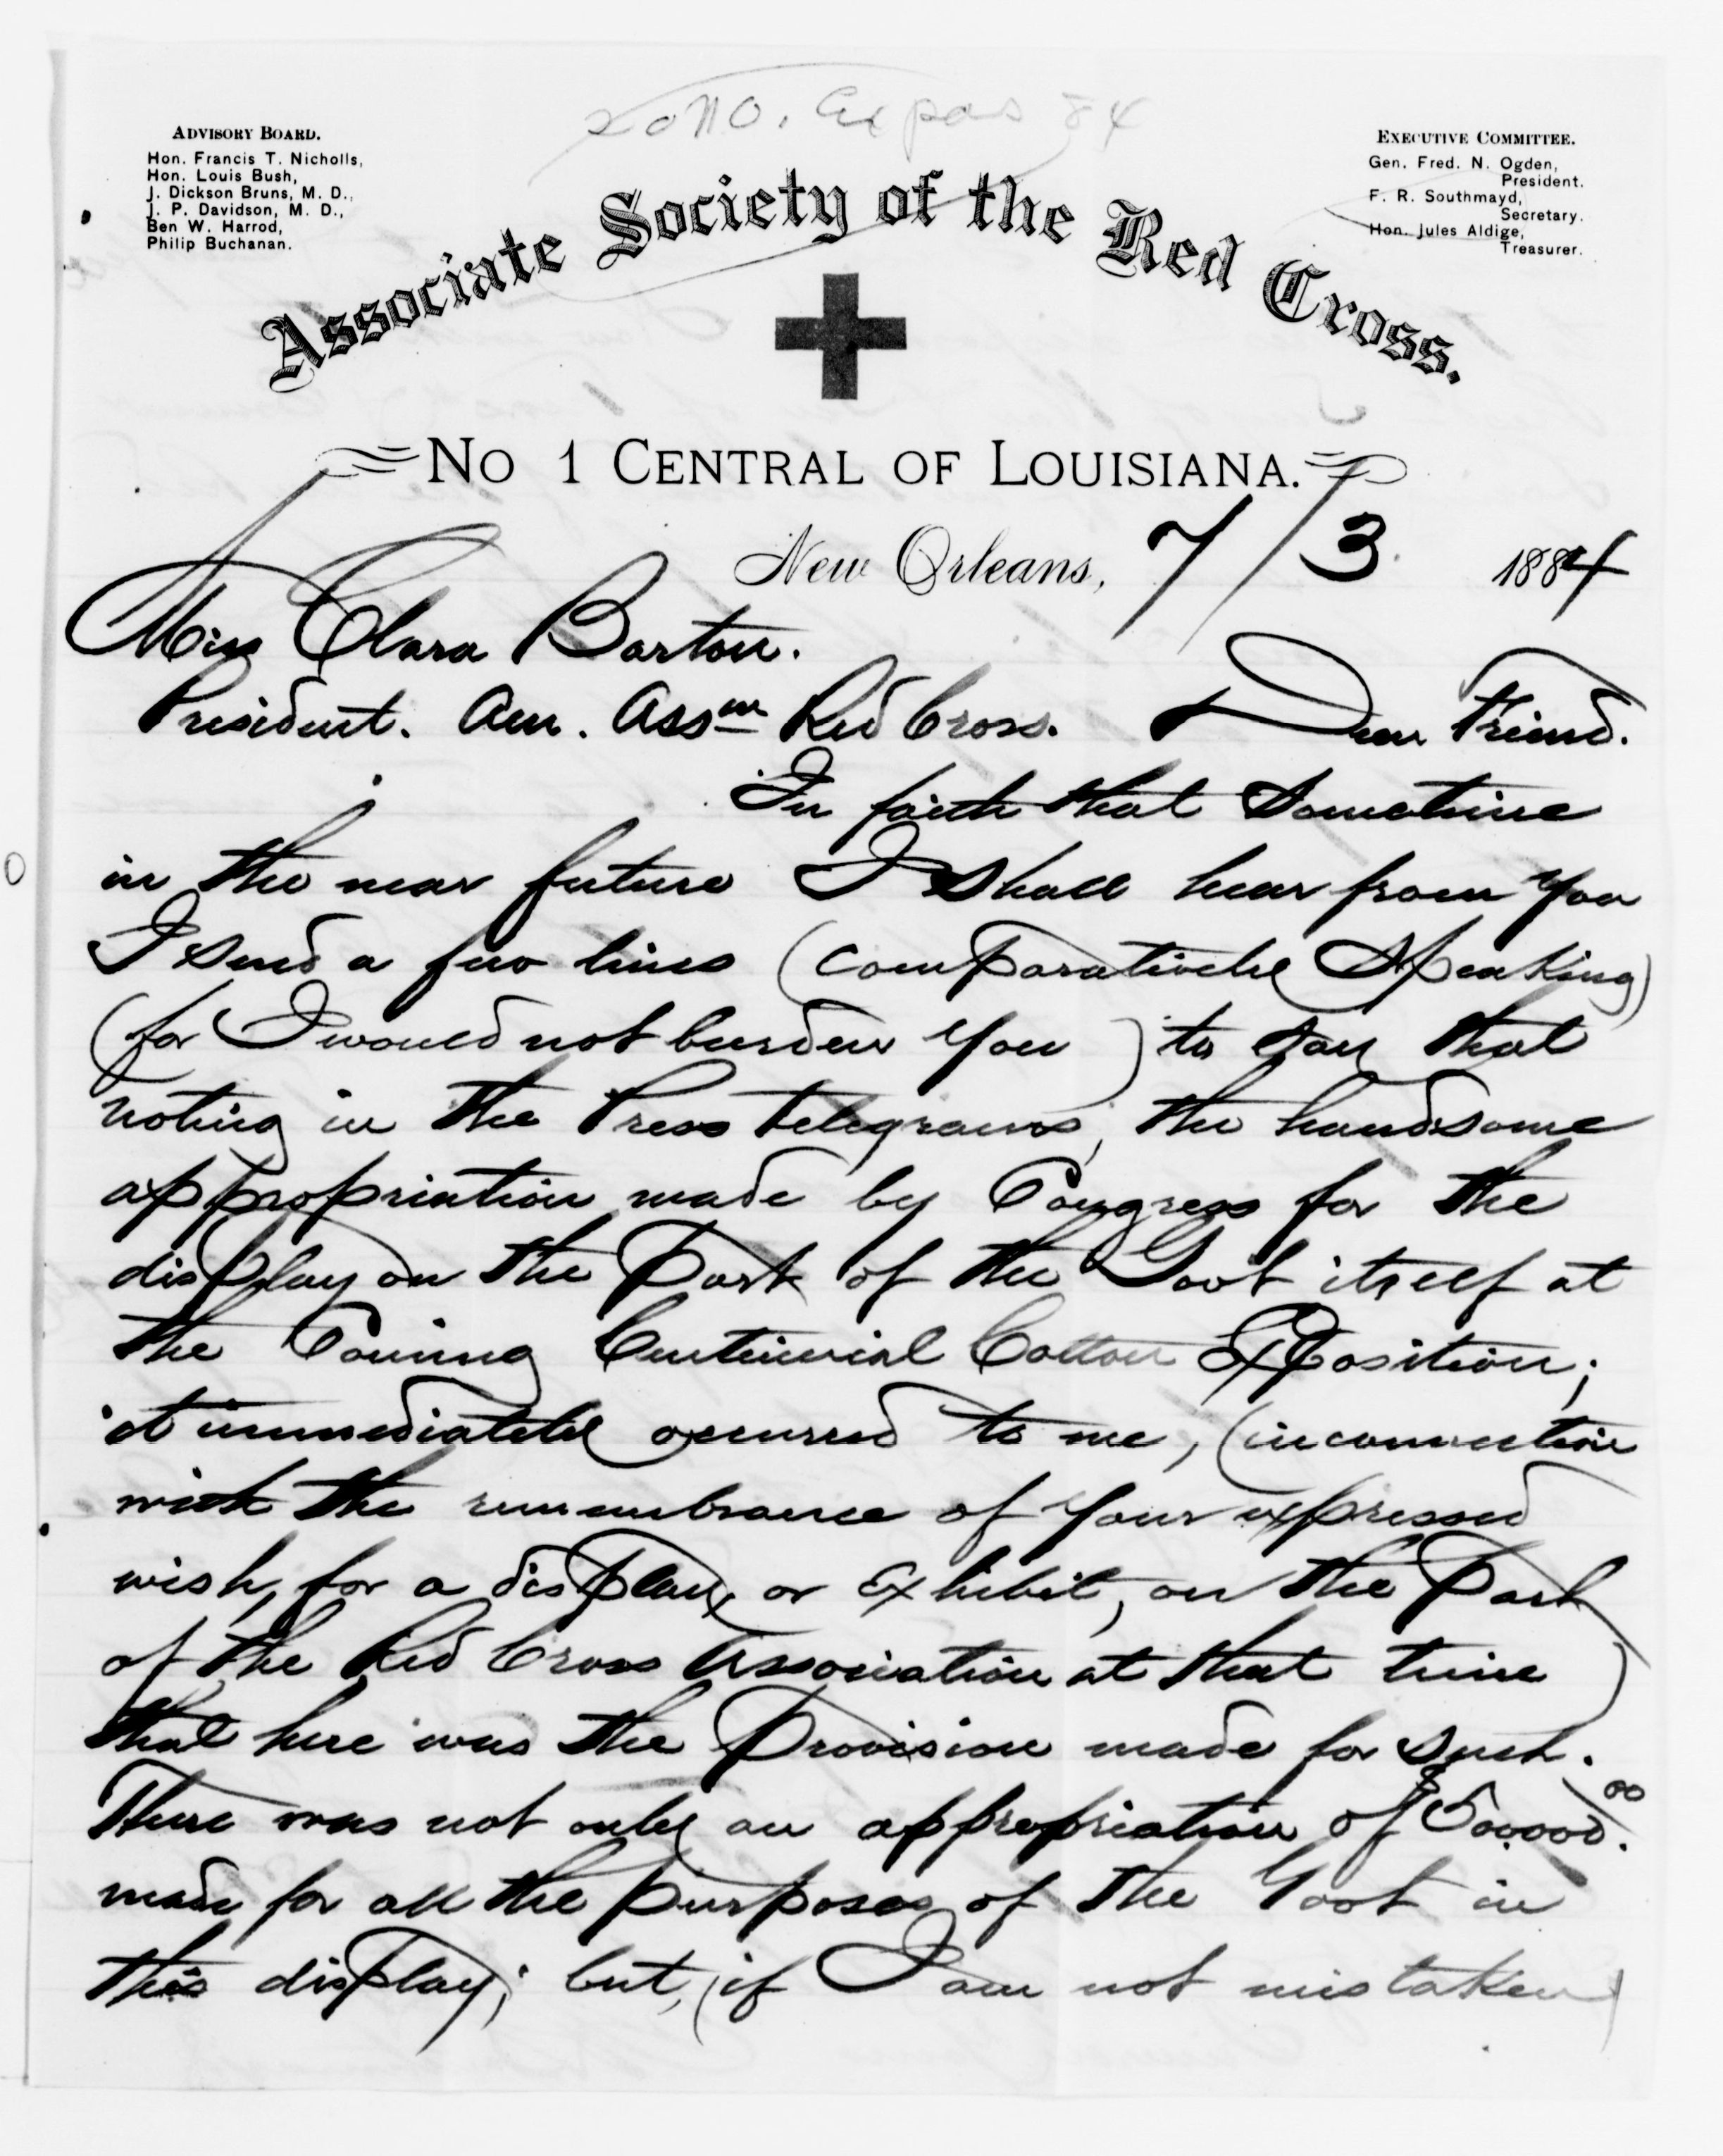 N.O. Expos 84
ADVISORY BOARD.
Hon. Francis T. Nicholls,
Hon. Louis Bush,
J. Dickson Bruns, M. D.,
J. P. Davidson, M. D.,
Ben W. Harrod,
Philip Buchanan.
EXECUTIVE COMMITTEE.
Gen. Fred. N. Ogden,
President.
F. R. Southmayd,
Secretary.
Hon. Jules Aldige,
Treasurer.
Associate Society of the Red Cross.
No 1 CENTRAL OF LOUISIANA.
New Orleans, 7/3 1884
Miss Clara Barton.
President. Am. Assn Red Cross. Dear Friend.
In faith that Sometime
in the near future I Shall hear from you
I Send a few lines (comparatively Speaking)
(for I would not burden you) to Say that
noting in the Press telegrams, the handsome
appropriation made by Congress for the
display on the Part of the Govt itself at
the Coming Centennial Cotton Exposition;
it immediately occurred to me, (in connection
with the remembrance of your expressed
wish, for a display, or Exhibit, on the Part
of the Red Cross Association at that time)
that here was the Provision made for Such.
There was not only an appropriation of $500000.00
made for all the purposes of the Govt in
this display; but, (if I am not mistaken)